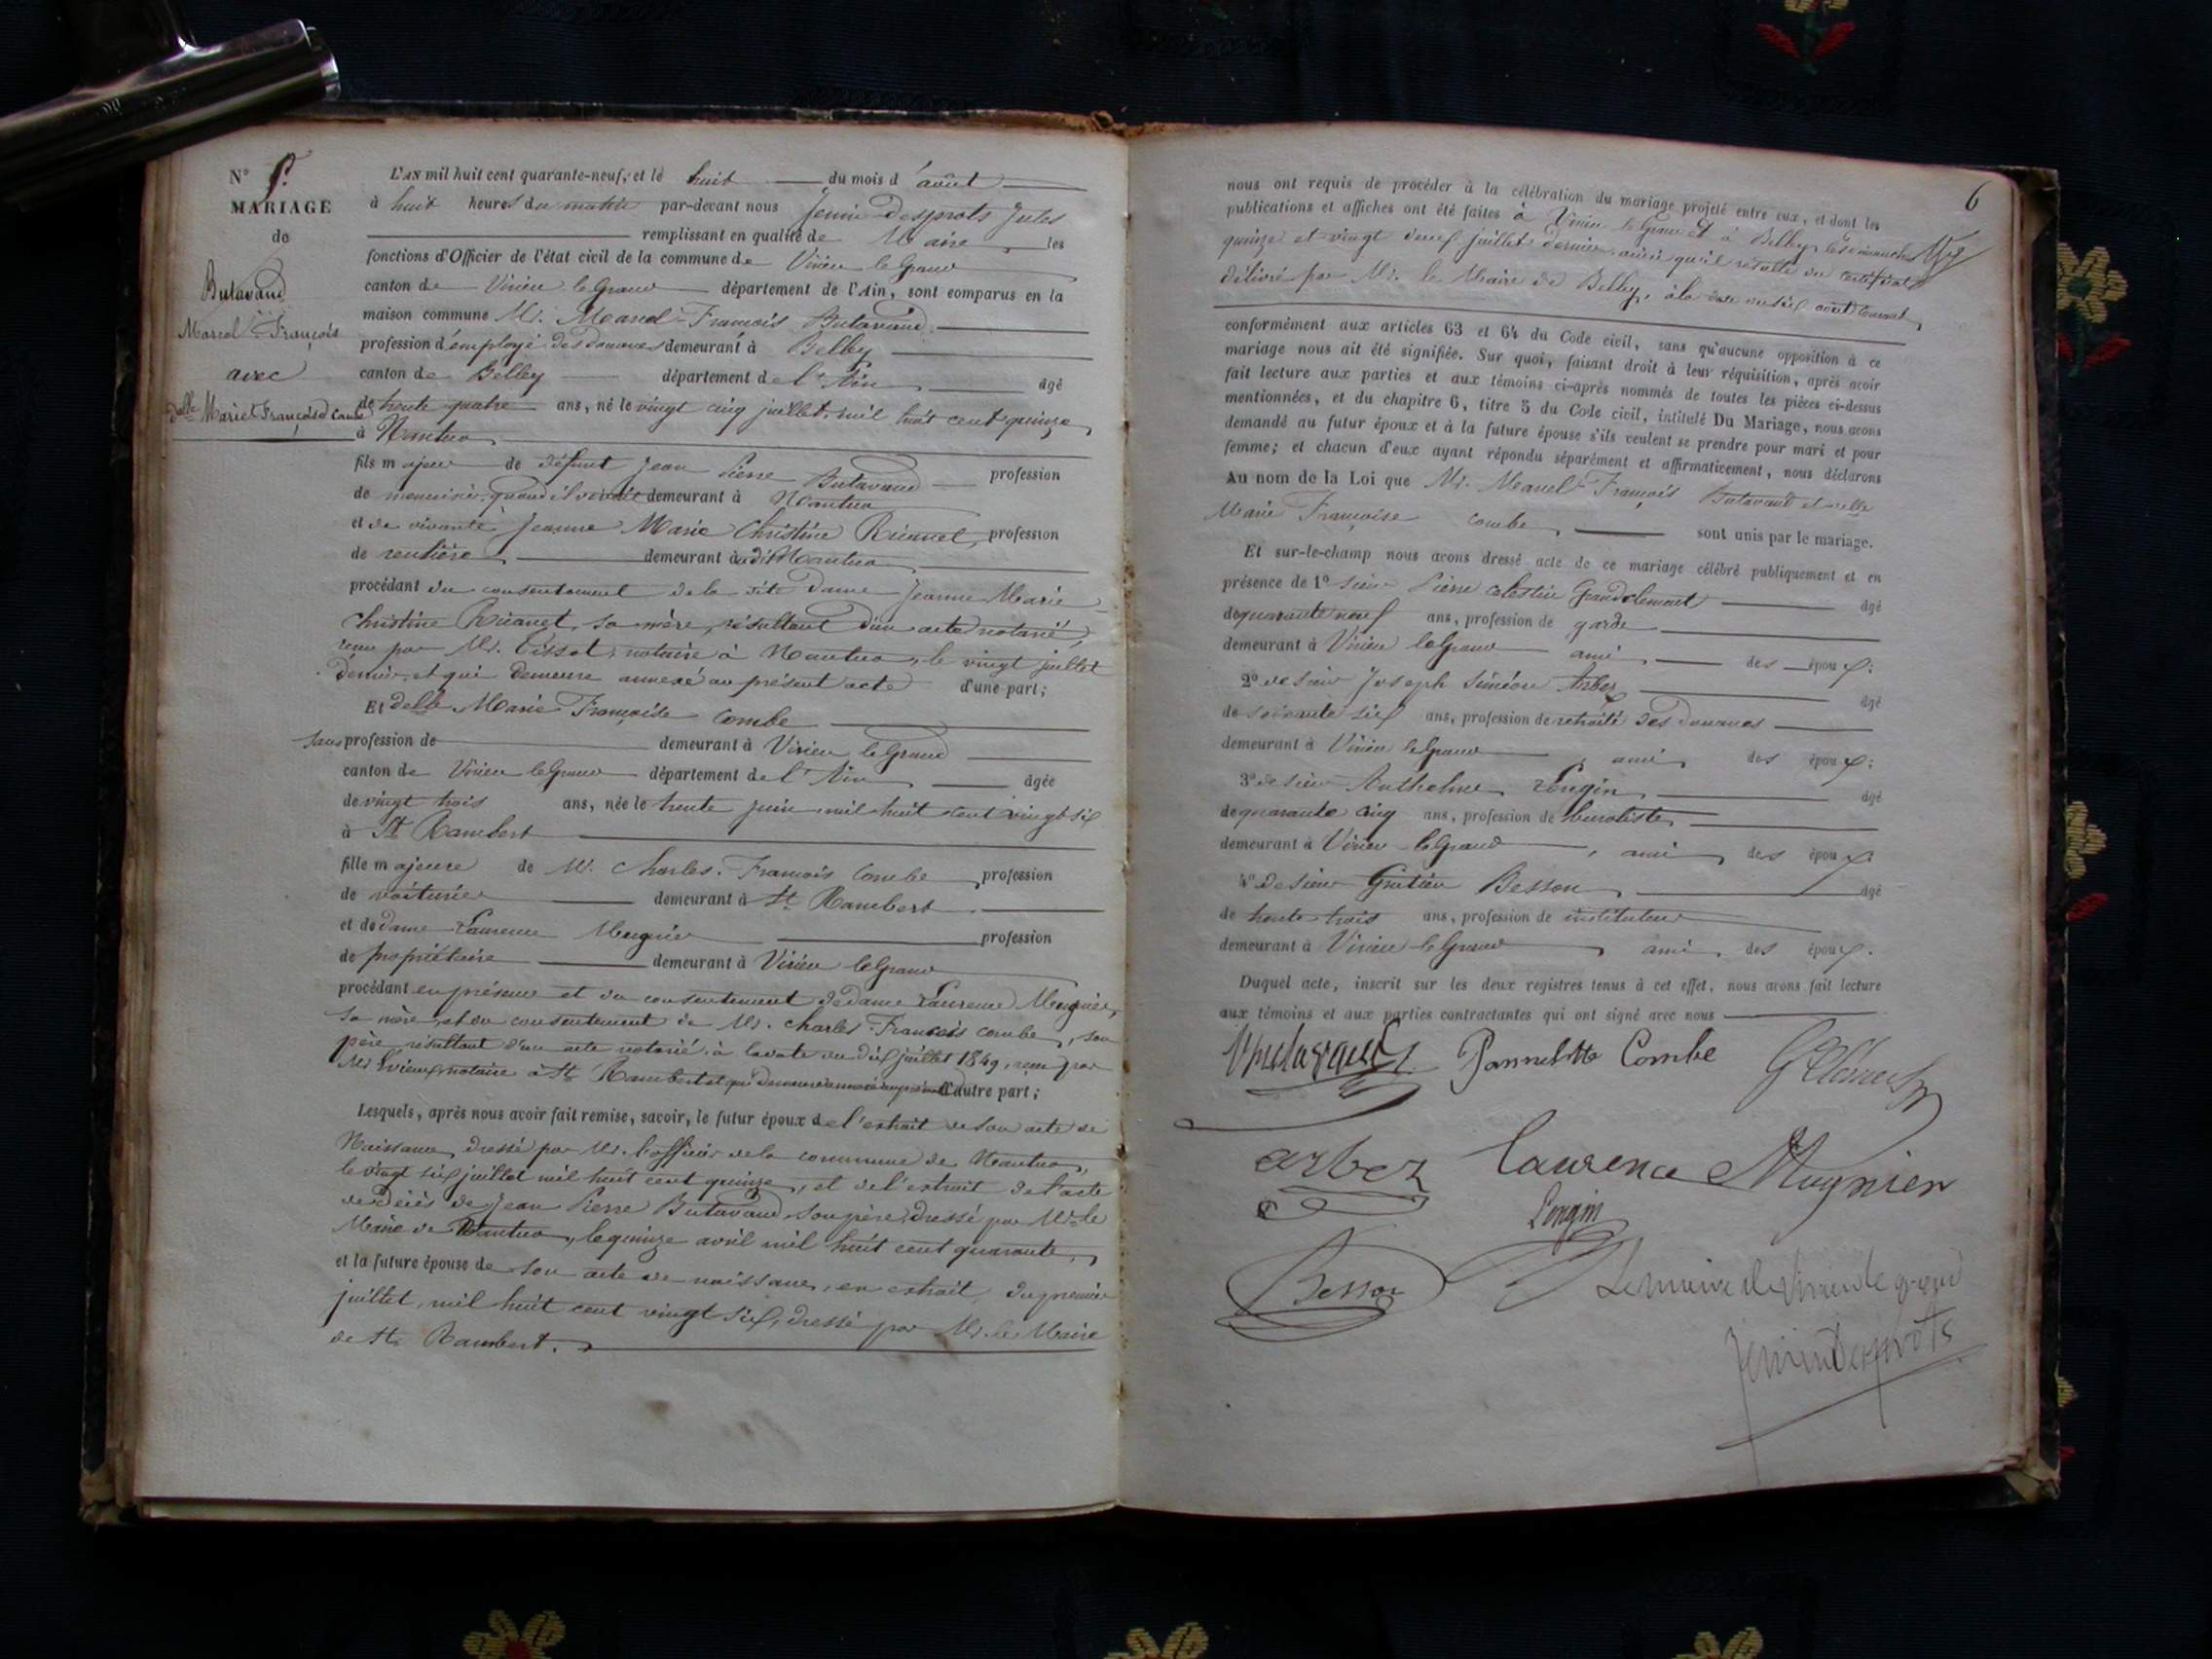 N° 5.
MARIAGE
de
Butavand
Marcel François
avec
delle Marie Françoise Combe
L'AN mil huit cent quarante-neuf, et le huit du mois d'août
à huit heures du matin par-devant nous Jenin Desprots Jules
remplissant en qualité de Maire les
fonctions d'Officier de l'état civil de la commune de Virieu le Grand
canton de Virieu le Grand département de l'Ain, sont comparus en la
maison commune Mr. Marcel François Butavand
profession d'employé des douanes demeurant à Belley
canton de Belley département de l'Ain âgé
de trente quatre ans, né le vingt cinq juillet mil huit cent quinze
à Nantua
fils majeur de défunt Jean Pierre Butavand profession
de menuisier, quand il vivait demeurant à Nantua
et de vivante Jeanne Marie Christine profession
de rentière demeurant audit Nantua
procédant du consentement de la dite Dame Jeanne Marie
Christine sa mère, résultant d'un acte notarié,
reçu par Mr. Tissot, notaire à Nantua, le vingt juillet
dernier, et qui demeure annexé au présent acte d'une part;
Et delle Marie Françoise Combe
sans profession de demeurant à Virieu le Grand
canton de Virieu le Grand département de l'Ain âgée
de vingt trois ans, née le trente juin mil huit cent vingt six
à St Rambert
fille majeure de Mr. Charles François Combe profession
de voiturier demeurant à St Rambert
et de dame Laurence Mugnier profession
de propriétaire demeurant à Virieu le Grand
procédant en présence et du consentement de dame Laurence Mugnier,
sa mère, et du consentement de Mr. Charles François Combe, son
père, résultant d'un acte notarié à la date du dix juillet 1849, reçu par
Mr notaire à St Rambert et qui demeure annexé au présent d'autre part;
Lesquels, après nous avoir fait remise, savoir, le futur époux de l'extrait de son acte de
Naissance, dressé par Mr. l'officier de la commune de Nantua,
le vingt six juillet mil huit cent quinze, et de l'extrait de l'acte
de décès de Jean Pierre Butavand, son père, dressé par Mr le
Maire de Nantua, le quinze avril mil huit cent quarante,
et la future épouse de son acte de naissance, en extrait, du premier
juillet mil huit cent vingt six, dressé par Mr. le Maire
de St Rambert.
6
nous ont requis de procéder à la célébration du mariage projeté entre eux, et dont les
publications et affiches ont été faites à Virieu le Grand et à Belley les dimanches
quinze et vingt deux juillet dernier, ainsi qu'il résulte du certificat
délivré par Mr. le Maire de Belley, à la date du six août courant,
conformément aux articles 63 et 64 du Code civil, sans qu'aucune opposition à ce
mariage nous ait été signifiée. Sur quoi, faisant droit à leur réquisition, après avoir
fait lecture aux parties et aux témoins ci-après nommés de toutes les pièces ci-dessus
mentionnées, et du chapitre 6, titre 5 du Code civil, intitulé Du Mariage, nous avons
demandé au futur époux et à la future épouse s'ils veulent se prendre pour mari et pour
femme; et chacun d'eux ayant répondu séparément et affirmativement, nous déclarons
Au nom de la Loi que Mr. Marcel François Butavand et delle
Marie Françoise Combe sont unis par le mariage.
Et sur-le-champ nous avons dressé acte de ce mariage célébré publiquement et en
présence de 1° sieur Pierre Celestin Grandclement âgé
de quarante neuf ans, profession de garde
demeurant à Virieu le Grand ami des époux;
2° de sieur Joseph Siméon Arbez âgé
de soixante six ans, profession de retraité des Douanes
demeurant à Virieu le Grand, ami des époux;
3° de sieur Anthelme Longin âgé
de quarante cinq ans, profession de buraliste
demeurant à Virieu le Grand, ami des époux
4° de sieur Gratien Besson âgé
de trente trois ans, profession de instituteur
demeurant à Virieu le Grand, ami des époux.
Duquel acte, inscrit sur les deux registres tenus à cet effet, nous avons fait lecture
aux témoins et aux parties contractantes qui ont signé avec nous
Butavand Pannelotte Combe
arbez Laurence Mugnier
Longin
Besson Le maire de Virieu le grand
Jenin Desprots